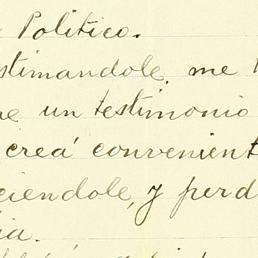 Politico.
stimandole, me
e un testimonio
creá convenient
ciendole, y perd
ia.